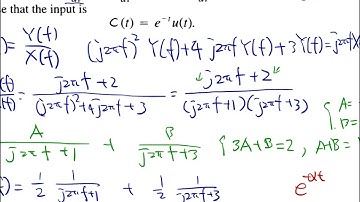 se that the input is
C (t) = e^{-t} u(t).
) = Y(f)/X(f) (j2πf)² Y(f)+4 j2πf Y(f)+3Y(f)=j2πf X
(f)/(f) = (j2πf+2)/((j2πf)²+4j2πf+3) = (j2πf+2)/((j2πf+1)(j2πf+3)) { A= B=
A/(j2πf+1) + B/(j2πf+3) { 3A+B=2, A+B=1
f)= 1/2 1/(j2πf+1) + 1/2 1/(j2πf+3) e^{-αt}